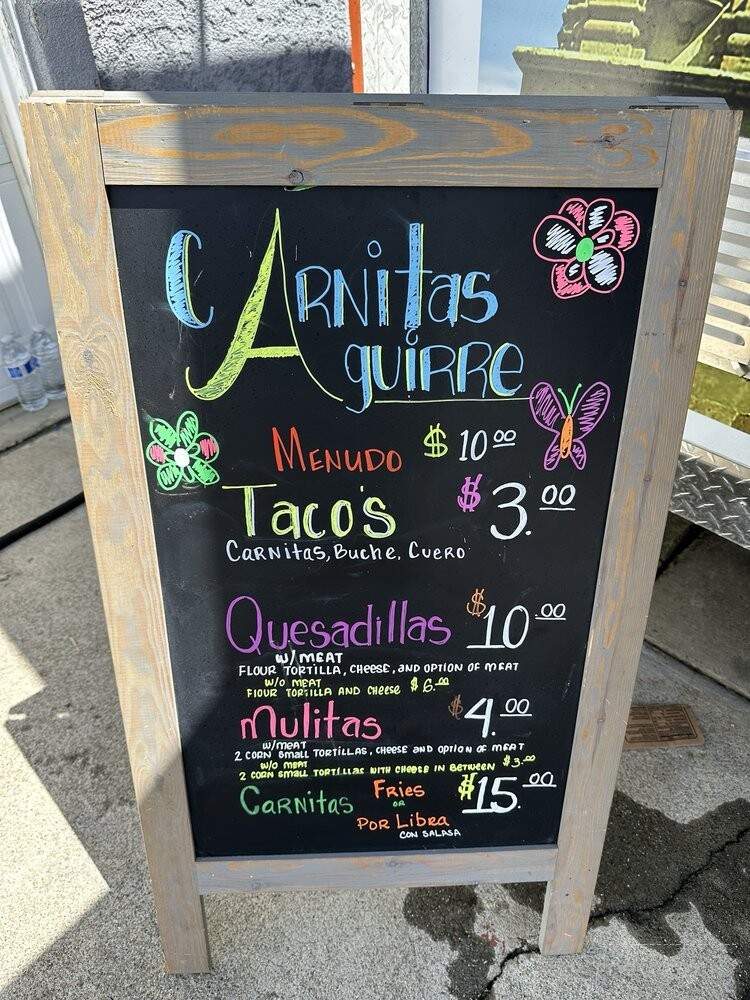 CARNitas
AguiRRe
MENUDO $ 10.00
Taco's $ 3.00
CARNitas, Buche, Cuero
Quesadillas $ 10.00
w/ MEAT
FLOUR TORTILLA, CHEESE, AND OPTION OF MEAT
W/O MEAT
FLOUR TORTILLA AND CHEESE $ 6.00
Mulitas $ 4.00
w/MEAT
2 CORN SMALL TORTILLAS, CHEESE AND OPTION OF MEAT
W/O MEAT
2 CORN SMALL TORTILLAS WITH CHEESE IN BETWEEN $3.00
CARNitas FRies $15.00
OR
POR LiBRA
CON SALASA